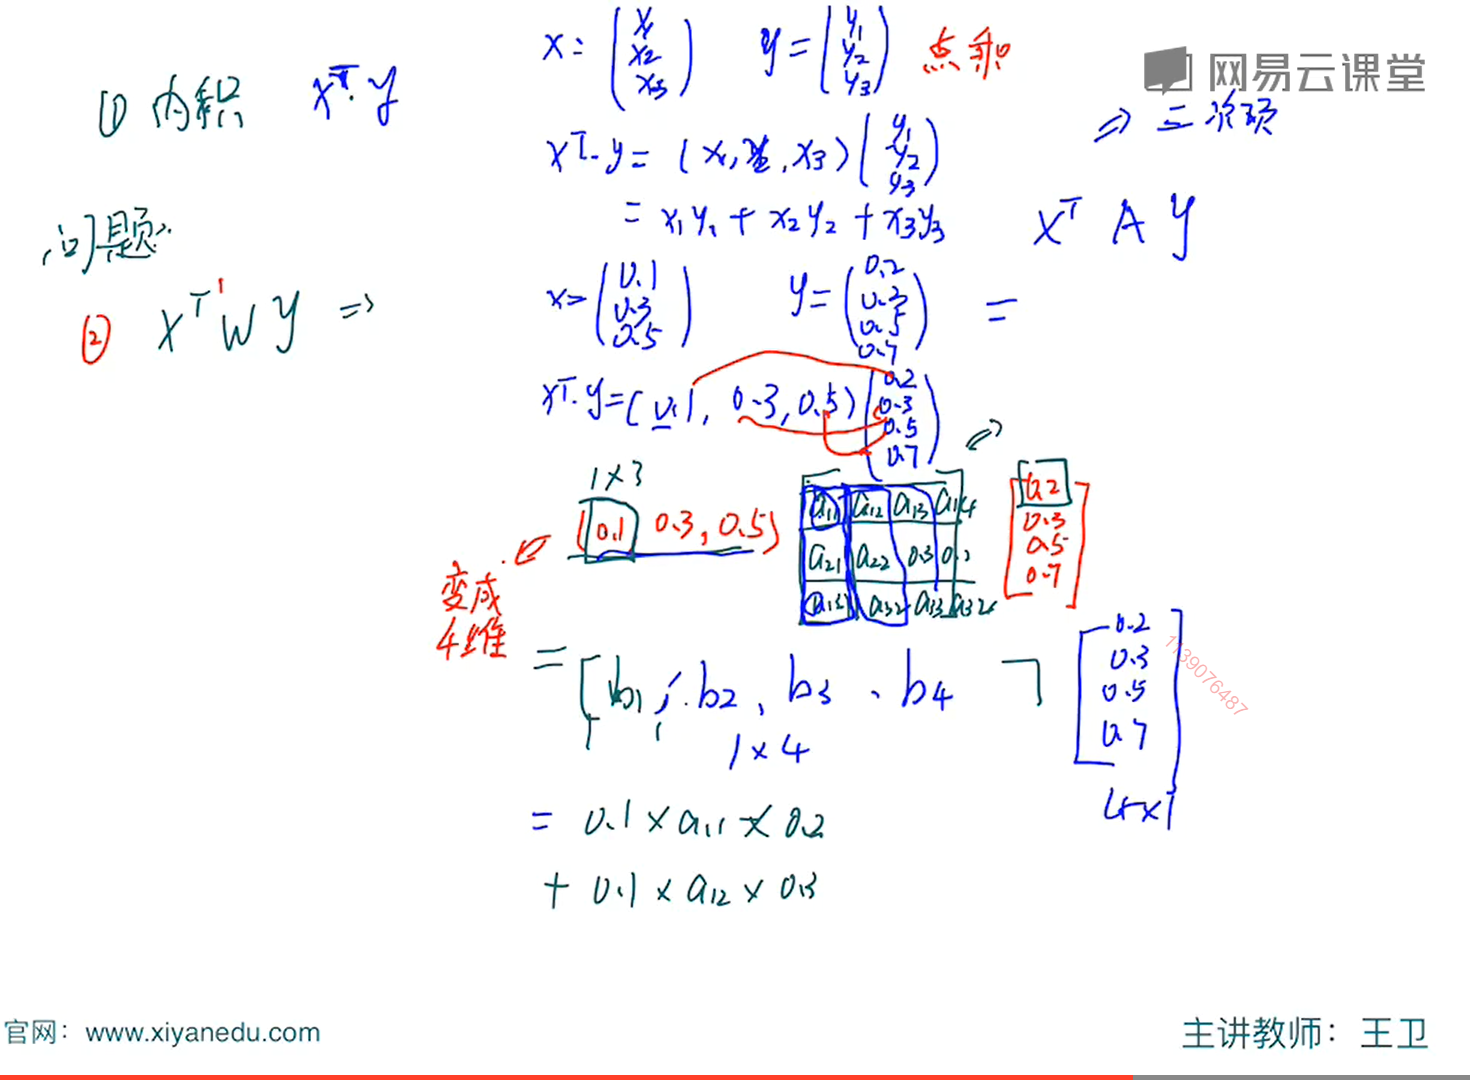 x = (x1 x2 x3) y = (y1 y2 y3) 点积
网易云课堂
① 内积 x^T·y
⇒ 二次项
x^T·y = (x1, x2, x3) (y1 y2 y3)
= x1y1 + x2y2 + x3y3
x^T A y
问题:
② x^T W y ⇒
x = (0.1 0.3 0.5) y = (0.2 0.3 0.5 0.7) =
x^T·y = (0.1, 0.3, 0.5) (0.2 0.3 0.5 0.7)
1×3
(0.1 0.3, 0.5)
a11 a12 a13 a14
a21 a22 0.3
a32 a33
[0.2 0.3 0.5 0.7]
变成
4维
= [b1, b2, b3, b4]
[0.2 0.3 0.5 0.7]
1139076487
1×4
4×1
= 0.1 × a11 × 0.2
+ 0.1 × a12 × 0.3
官网：www.xiyanedu.com
主讲教师：王卫